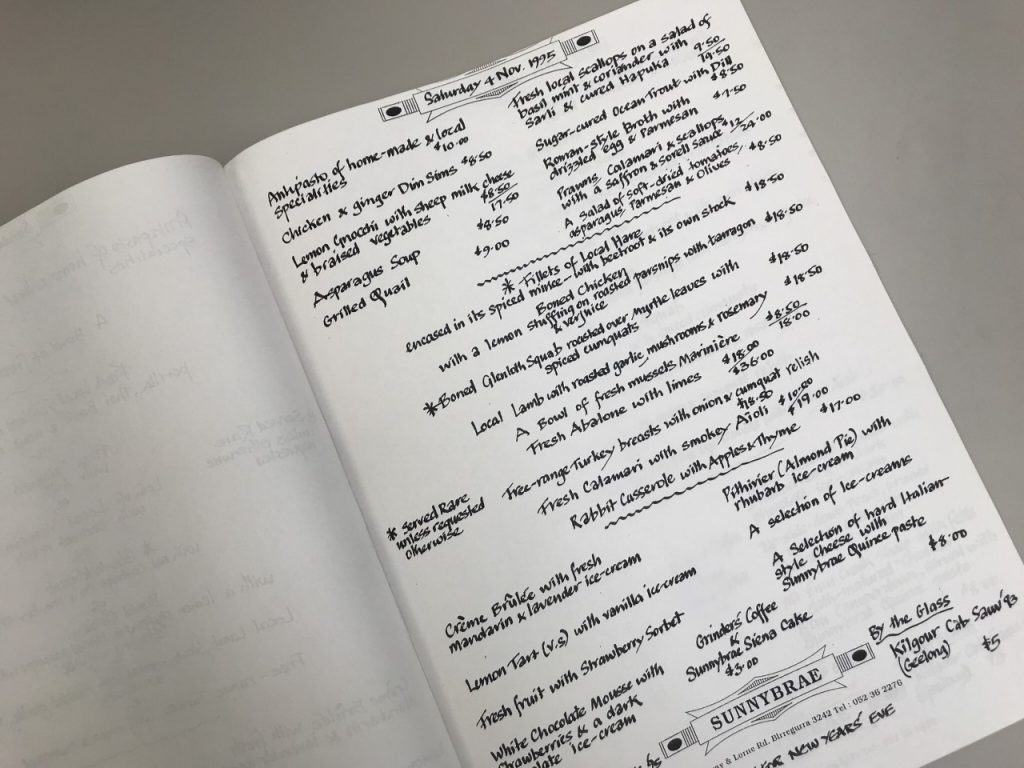 Saturday 4 Nov. 1995
Antipasto of home-made & local
specialities $10.00
Chicken & ginger Dim Sims $8.50
Lemon Gnocchi with sheep milk cheese
& braised vegetables $8.50
17.50
Asparagus Soup $8.50
Grilled Quail $9.00
Fresh local scallops on a salad of
basil mint & coriander with 9.50
Sarli & cured Hapuka 19.50
Sugar-cured Ocean Trout with Dill $8.50
Roman-style Broth with
drizzled egg & Parmesan $7.50
Prawns, Calamari & scallops 12/
with a saffron & sorell sauce 24.00
A Salad of soft-dried tomatoes,
asparagus, Parmesan & Olives $8.50
* Fillets of Local Hare
encased in its spiced mince with beetroot & its own stock $18.50
Boned Chicken
with a lemon stuffing on roasted parsnips with tarragon $18.50
& verjuice
* Boned Glenloth Squab roasted over Myrtle leaves with $18.50
spiced cumquats
Local Lamb with roasted garlic, mushrooms & rosemary $18.50
A Bowl of fresh mussels Marinière $8.50
18.00
Fresh Abalone with limes $18.00
$36.00
Free-range Turkey breasts with onion & cumquat relish
$18.50
Fresh Calamari with smokey Aïoli $10.00
$19.00
Rabbit Casserole with Apples & Thyme $17.00
* Served Rare
unless requested
otherwise
Crème Brûlée with fresh
mandarin & lavender ice-cream
Lemon Tart (v.s) with vanilla ice-cream
Fresh fruit with Strawberry Sorbet
White Chocolate Mousse with
Strawberries & a dark
Ice-cream
Pithivier (Almond Pie) with
rhubarb ice-cream
A selection of Ice-creams
A Selection of hard Italian-
style Cheese with
Sunnybrae Quince paste
$8.00
Grinders' Coffee
&
Sunnybrae Siena Cake
$3.00
By the Glass
Kilgour Cab Sauv '93
(Geelong) $5
SUNNYBRAE
& Lorne Rd. Birregurra 3242 Tel : 052 36 2276
FOR NEW YEARS' EVE